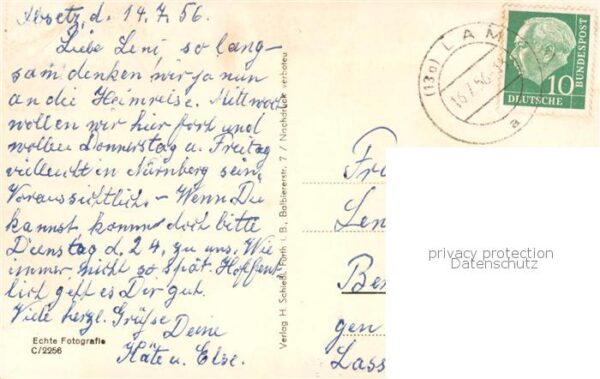 Absetz, d. 14.7.56.
Liebe Leni so lang-
sam denken wir ja nun
an die Heimreise. Mittwoch
wollen wir hier fort und
wollen Donnerstag u. Freitag
vielleicht in Nürnberg sein
Voraussichtlich - Wenn Du
kannst komm doch bitte
Dienstag d. 24. zu uns. Wie
immer, nicht so spät. Hoffent-
lich geht es Dir gut.
Viele herzl. Grüße
Deine
Käte u. Else.
Echte Fotografie
C/2256
Verlag H. Schiedl, Fürth i. B., Balbiererstr. 7 / Nachdruck verboten
(13a) LAM
16.7.56
a
10
DEUTSCHE
BUNDESPOST
Fr
Len
Be
gen
Lass
privacy protection
Datenschutz